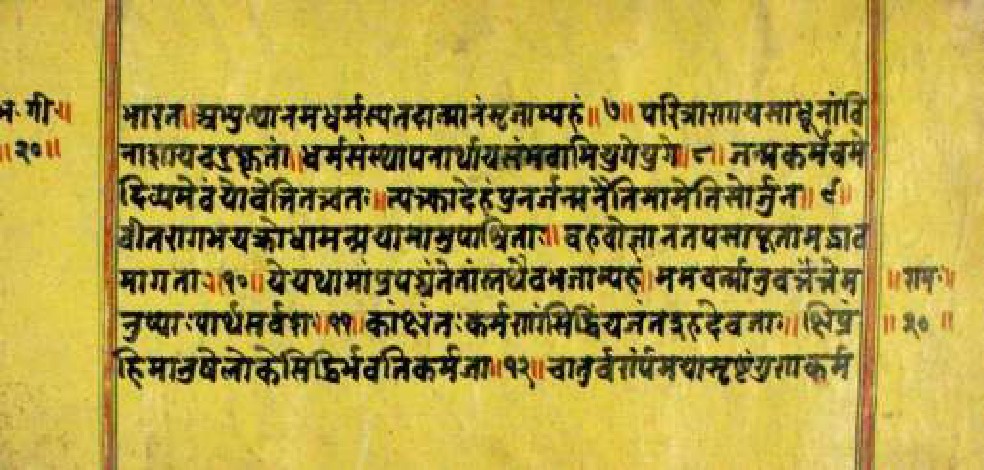 भ॰ गी॰॥
॥२०॥
भारत॥अभ्युत्थानमधर्मस्यतदात्मानंसृजाम्यहं॥७॥ परित्राणायसाधूनांवि
नाशायचदुष्कृतां॥धर्मसंस्थापनार्थायसंभवामियुगेयुगे॥८॥ जन्मकर्मचमे
दिव्यमेवंयोवेत्तितत्वतः॥त्यक्त्वादेहंपुनर्जन्मनैतिमामेतिसोर्जुन॥९॥
वीतरागभयक्रोधामन्मयामामुपाश्रिताः॥वहवोज्ञानतपसापूतामद्भाव
मागताः॥१०॥येयथामांप्रपद्यंतेतांस्तथैवभजाम्यहं॥ममवर्त्मानुवर्त्तंतेम
नुष्याःपार्थसर्वशः॥११॥कांक्षंतःकर्मणांसिद्धिंयजंतइहदेवताः॥क्षिप्रं
हिमानुषेलोकेसिद्धिर्भवतिकर्मजा॥१२॥चातुर्वर्ण्यंमयासृष्टंगुणकर्म
॥राम॰॥
॥२०॥